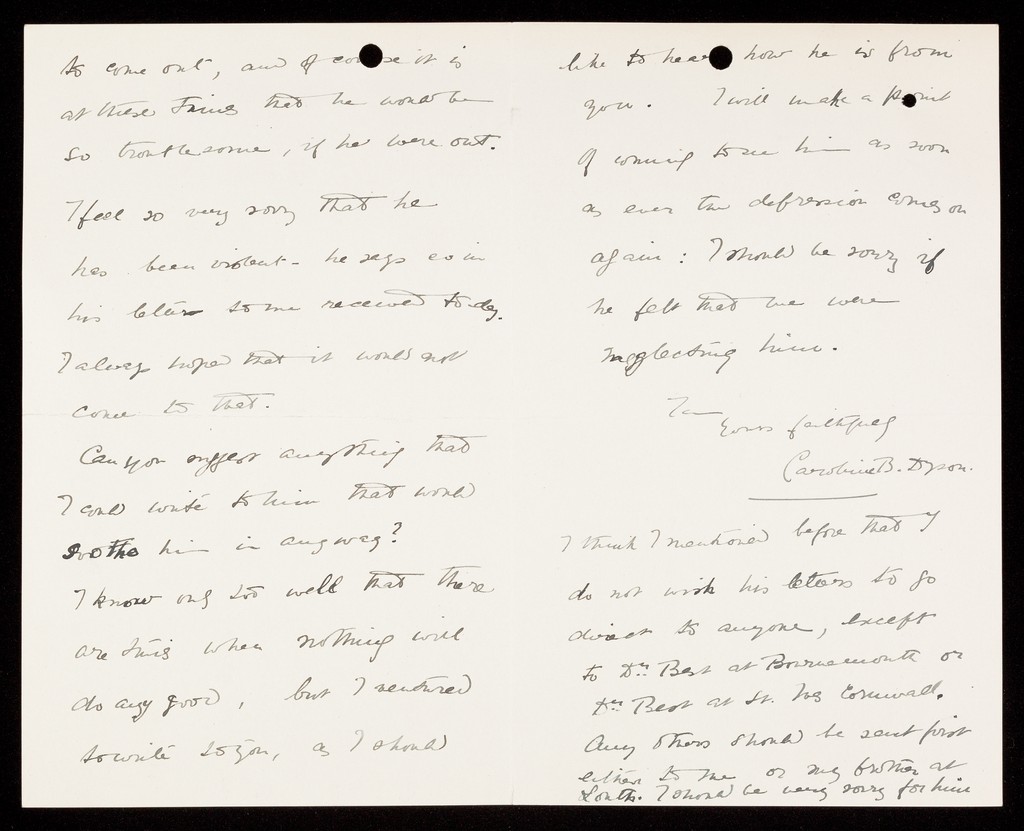 to come out, and of course it is
at these times that he would be
so troublesome, if he were out.
I feel so very sorry that he
has been violent - he says so in
his letter to me received to-day.
I always hoped that it would not
come to that.
Can you suggest anything that
I could write to him that would
soothe him in any way?
I know only too well that there
are times when nothing will
do any good, but I ventured
to write to you, as I should
like to hear how he is from
you. I will make a point
of coming to see him as soon
as ever the depression comes on
again: I should be sorry if
he felt that we were
neglecting him.
I am
Yours faithfully
Caroline B. Dyson.
I think I mentioned before that I
do not wish his letters to go
direct to anyone, except
to Dr. Best at Bournemouth or
Dr. Best at St. Ives Cornwall.
Any others should be sent first
either to me or my brother at
Louth. I should be very sorry for him